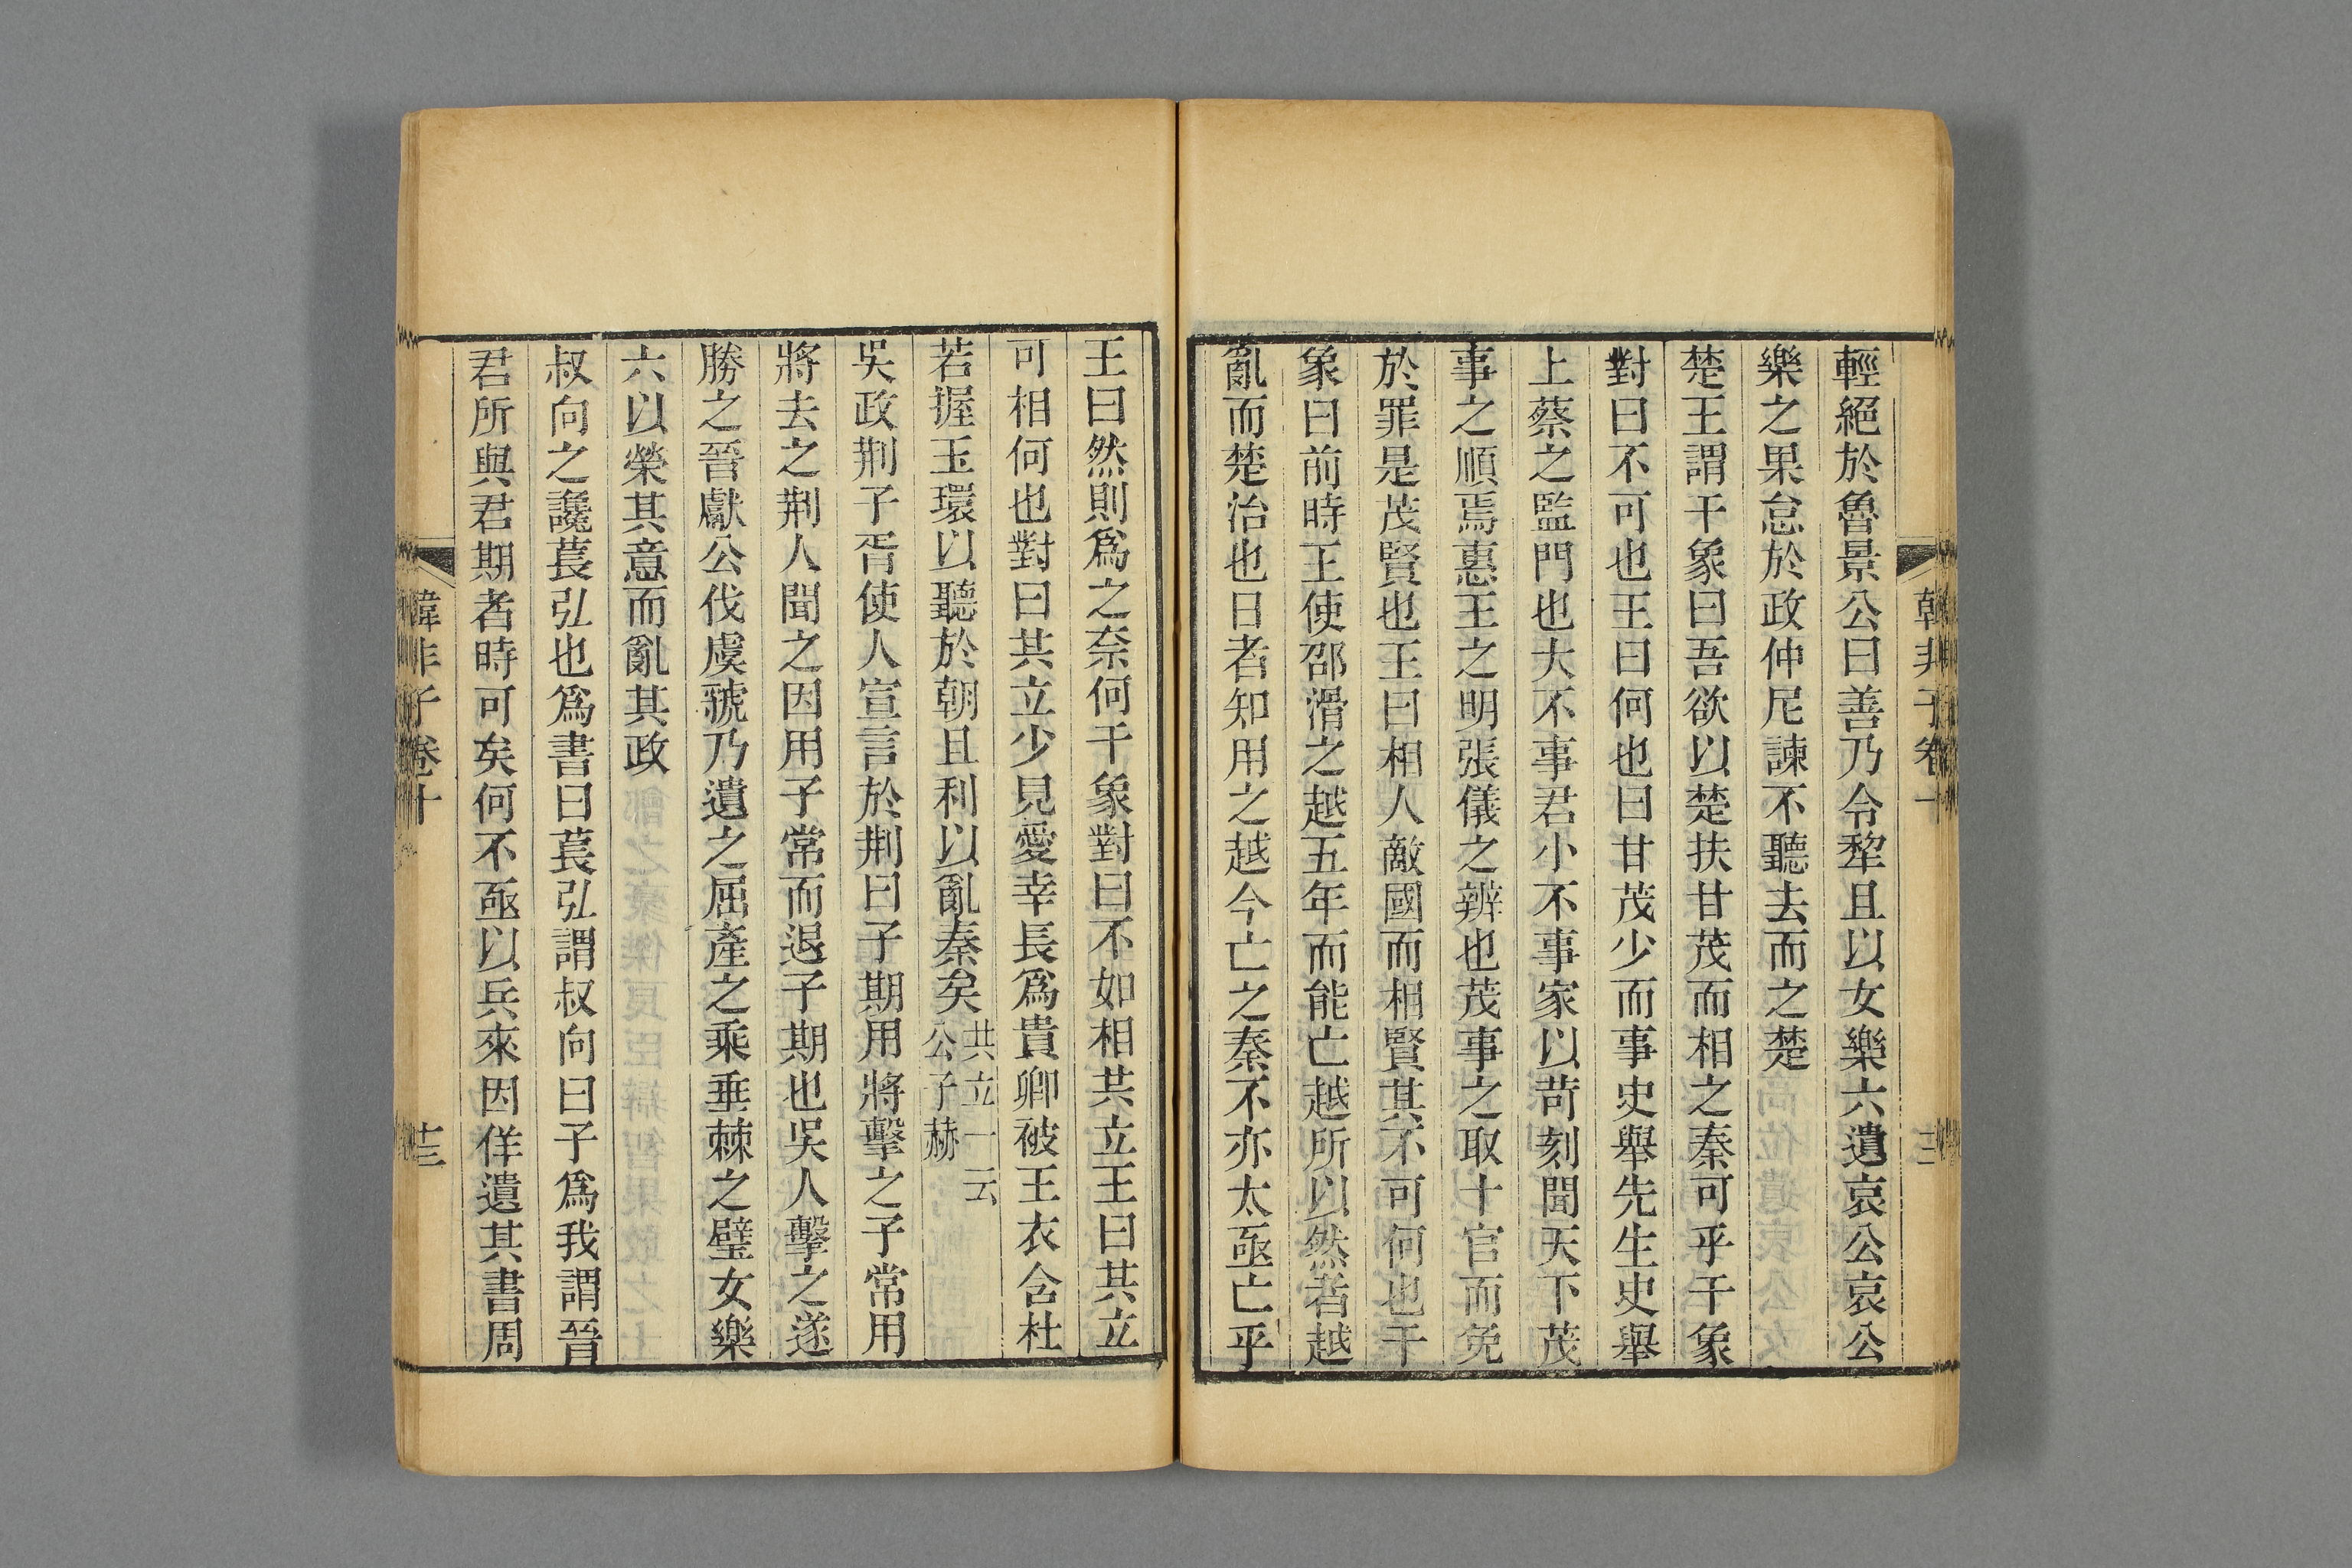 輕絕於魯景公曰善乃令犂且以女樂六遺哀公哀公
樂之果怠於政仲尼諫不聽去而之楚
楚王謂干象曰吾欲以楚扶甘茂而相之秦可乎干象
對曰不可也王曰何也曰甘茂少而事史舉先生史舉
上蔡之監門也大不事君小不事家以苛刻聞天下茂
事之順焉惠王之明張儀之辨也茂事之取十官而免
於罪是茂賢也王曰相人敵國而相賢其不可何也干
象曰前時王使邵滑之越五年而能亡越所以然者越
亂而楚治也日者知用之越今亡之秦不亦太亟亡乎
王曰然則爲之奈何干象對曰不如相共立王曰共立
可相何也對曰共立少見愛幸長爲貴卿被王衣含杜
若握玉環以聽於朝且利以亂秦矣共立一云公子赫
吳政荆子胥使人宣言於荆曰子期用將擊之子常用
將去之荆人聞之因用子常而退子期也吳人擊之遂
勝之晉獻公伐虞虢乃遺之屈產之乘垂棘之璧女樂
六以榮其意而亂其政
叔向之讒萇弘也爲書曰萇弘謂叔向曰子爲我謂晉
君所與君期者時可矣何不亟以兵來因佯遺其書周
韓非子卷十